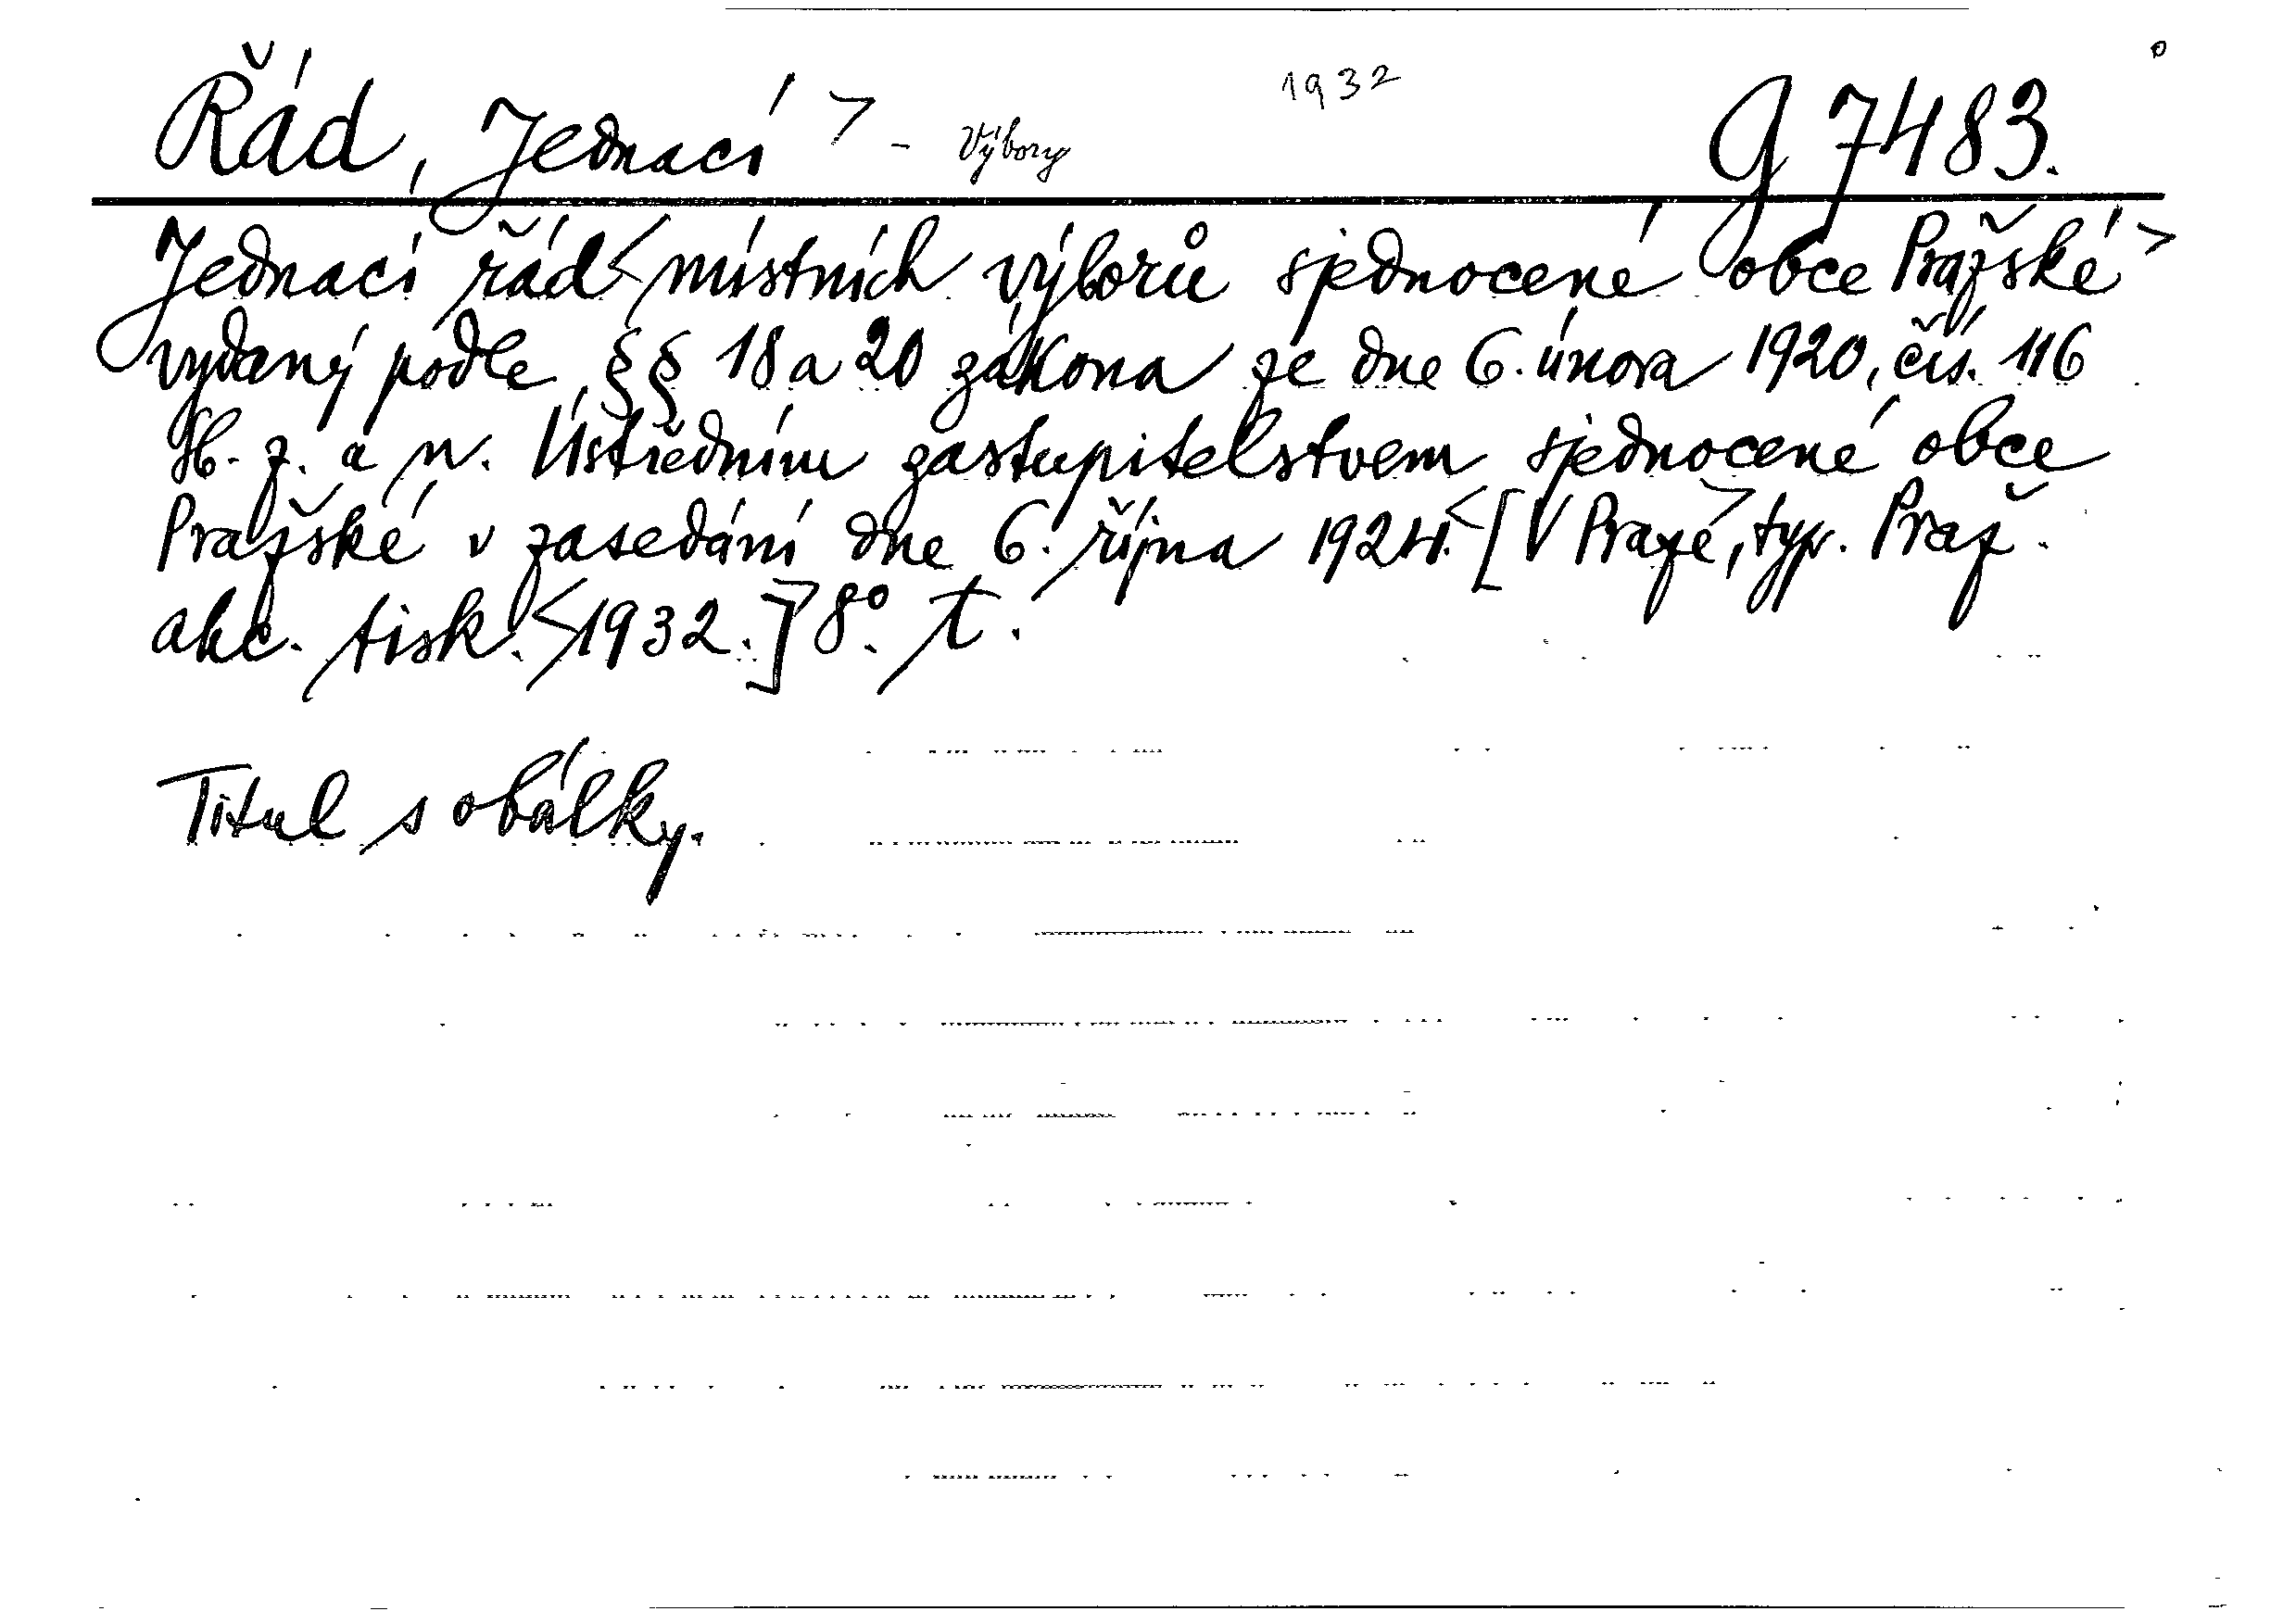 Řád, Jednací > - Výbory 1932 G 7483.
Jednací řád < místních výborů sjednocené obce Pražské >
vydaný podle §§ 18 a 20 zákona ze dne 6. února 1920, čís. 116
Sb. z. a n. Ústředním zastupitelstvem sjednocené obce
Pražské v zasedání dne 6. října 1924. < [V Praze >, typ. Praž.
akc. tisk. < 1932.] > 8°. t.
Titul s obálky.